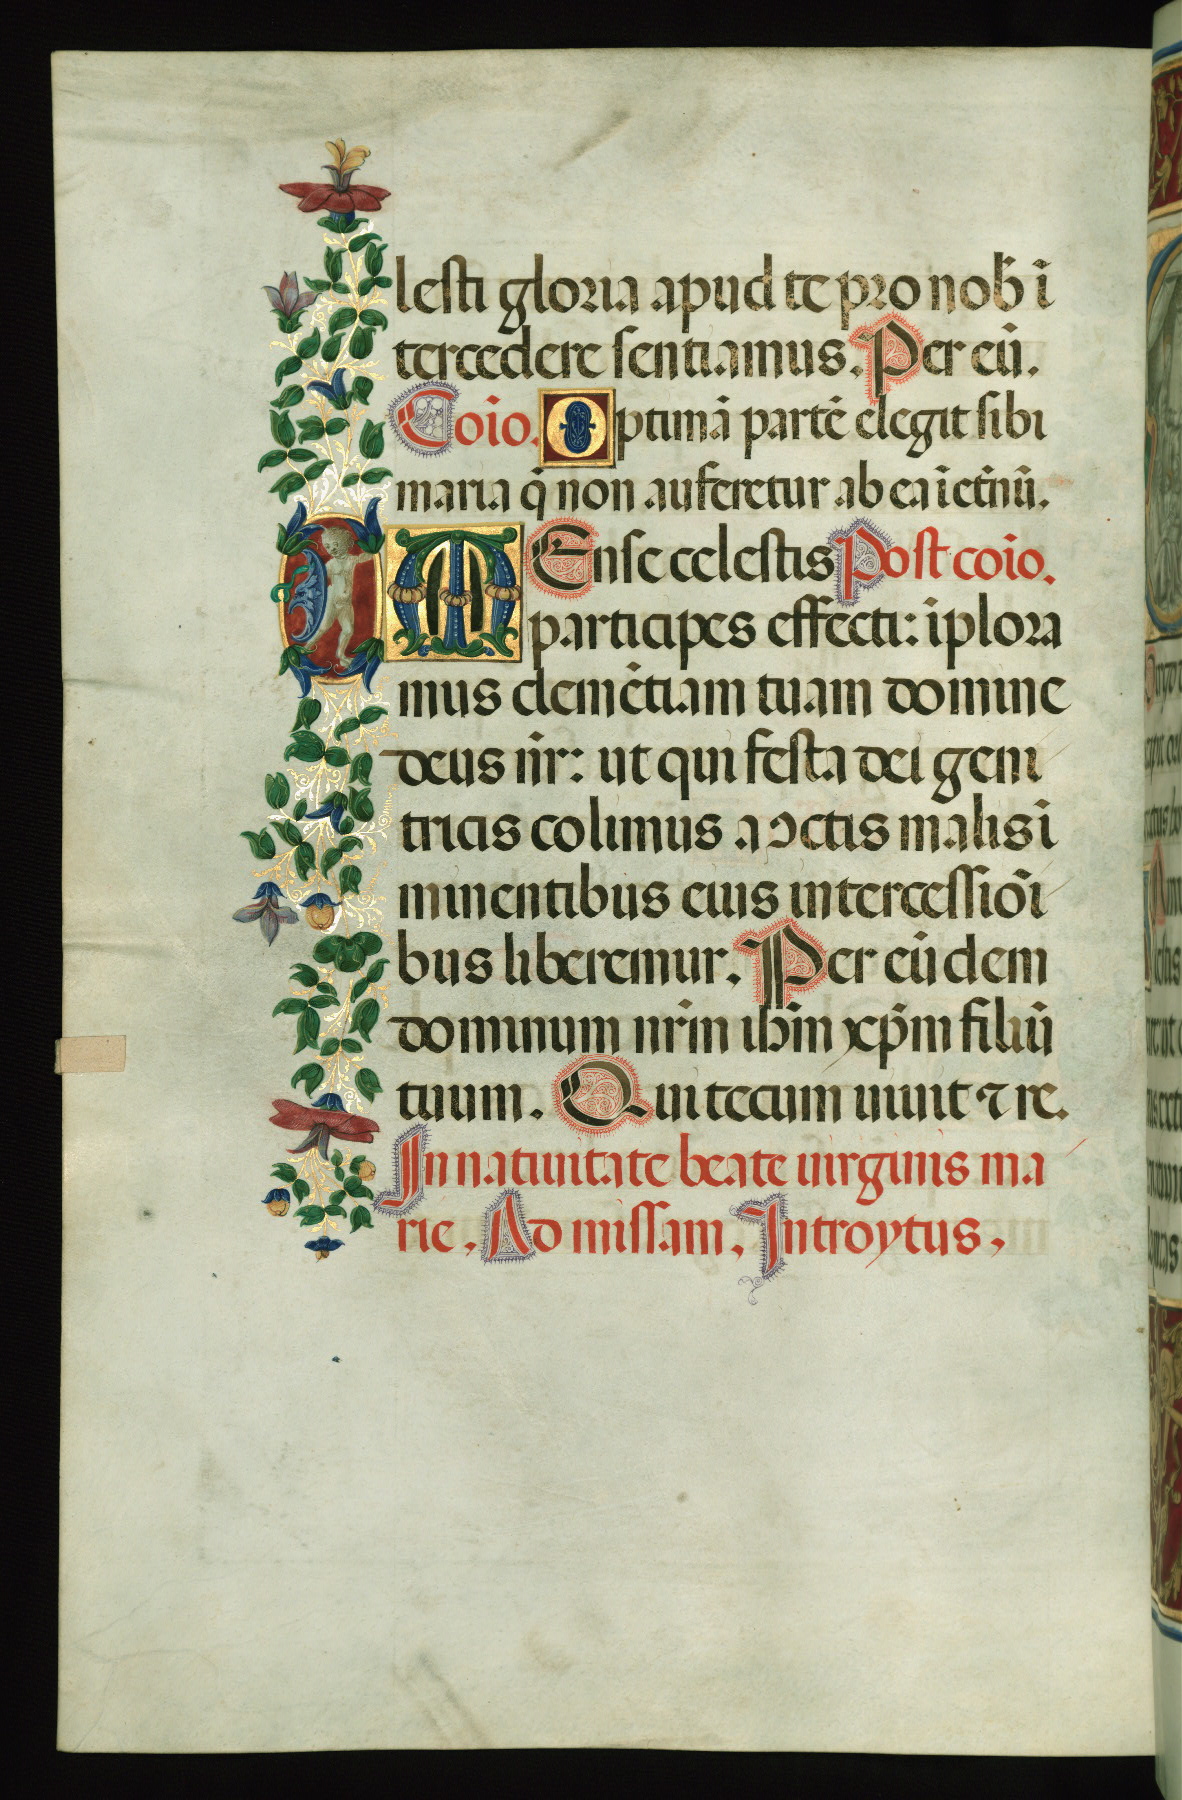 lesti gloria apud te pro nob̅ ī
tercedere sentiamus. Per eū.
Coīo. Optimā partē elegit sibi
maria q̄ non auferetur ab ea ī et̄nū.
MEnse celestis Post coīo.
participes effecti: īplora
mus clemētiam tuam domine
deus nr̄: ut qui festa dei geni
tricis colimus a ↄctis malis ī
minentibus eius intercessiōi
bus liberemur. Per eūdem
dominum nrm̄ ihm̄ xp̄m filiū
tuum. Qui tecum uiuit ⁊ re.
In natiuitate beate uirginis ma
rie. Ad missam. Introytus.